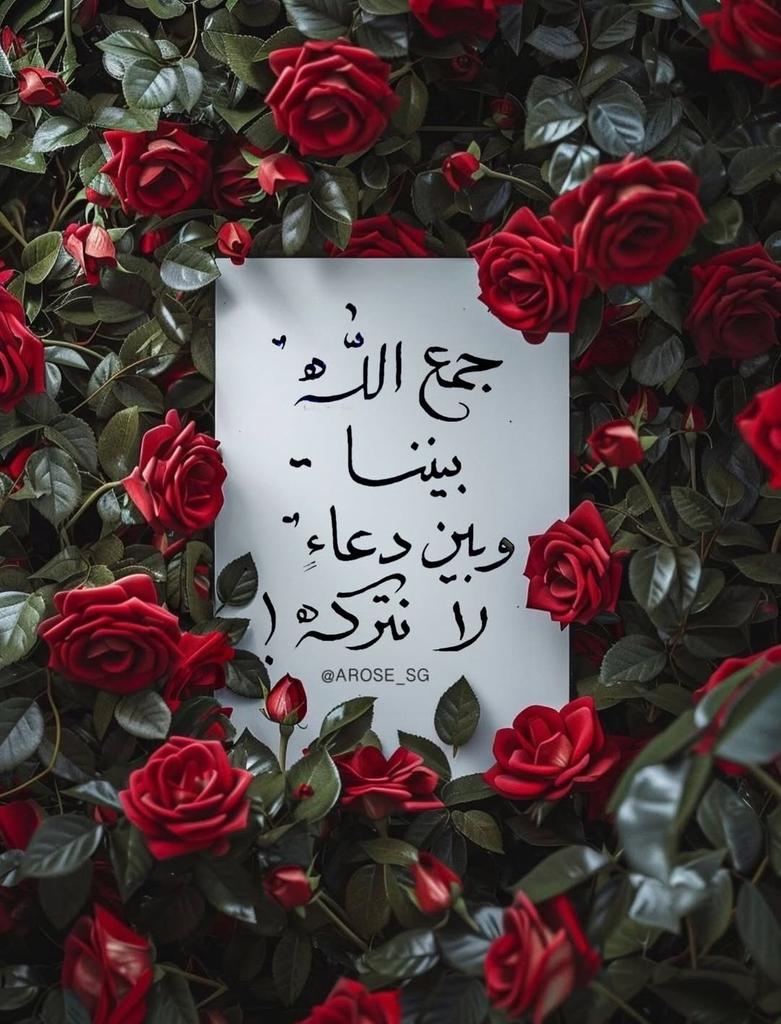 جمع اللّٰه
بيننا -
وبين دعاءٍ
لا نتركه !
@AROSE_SG